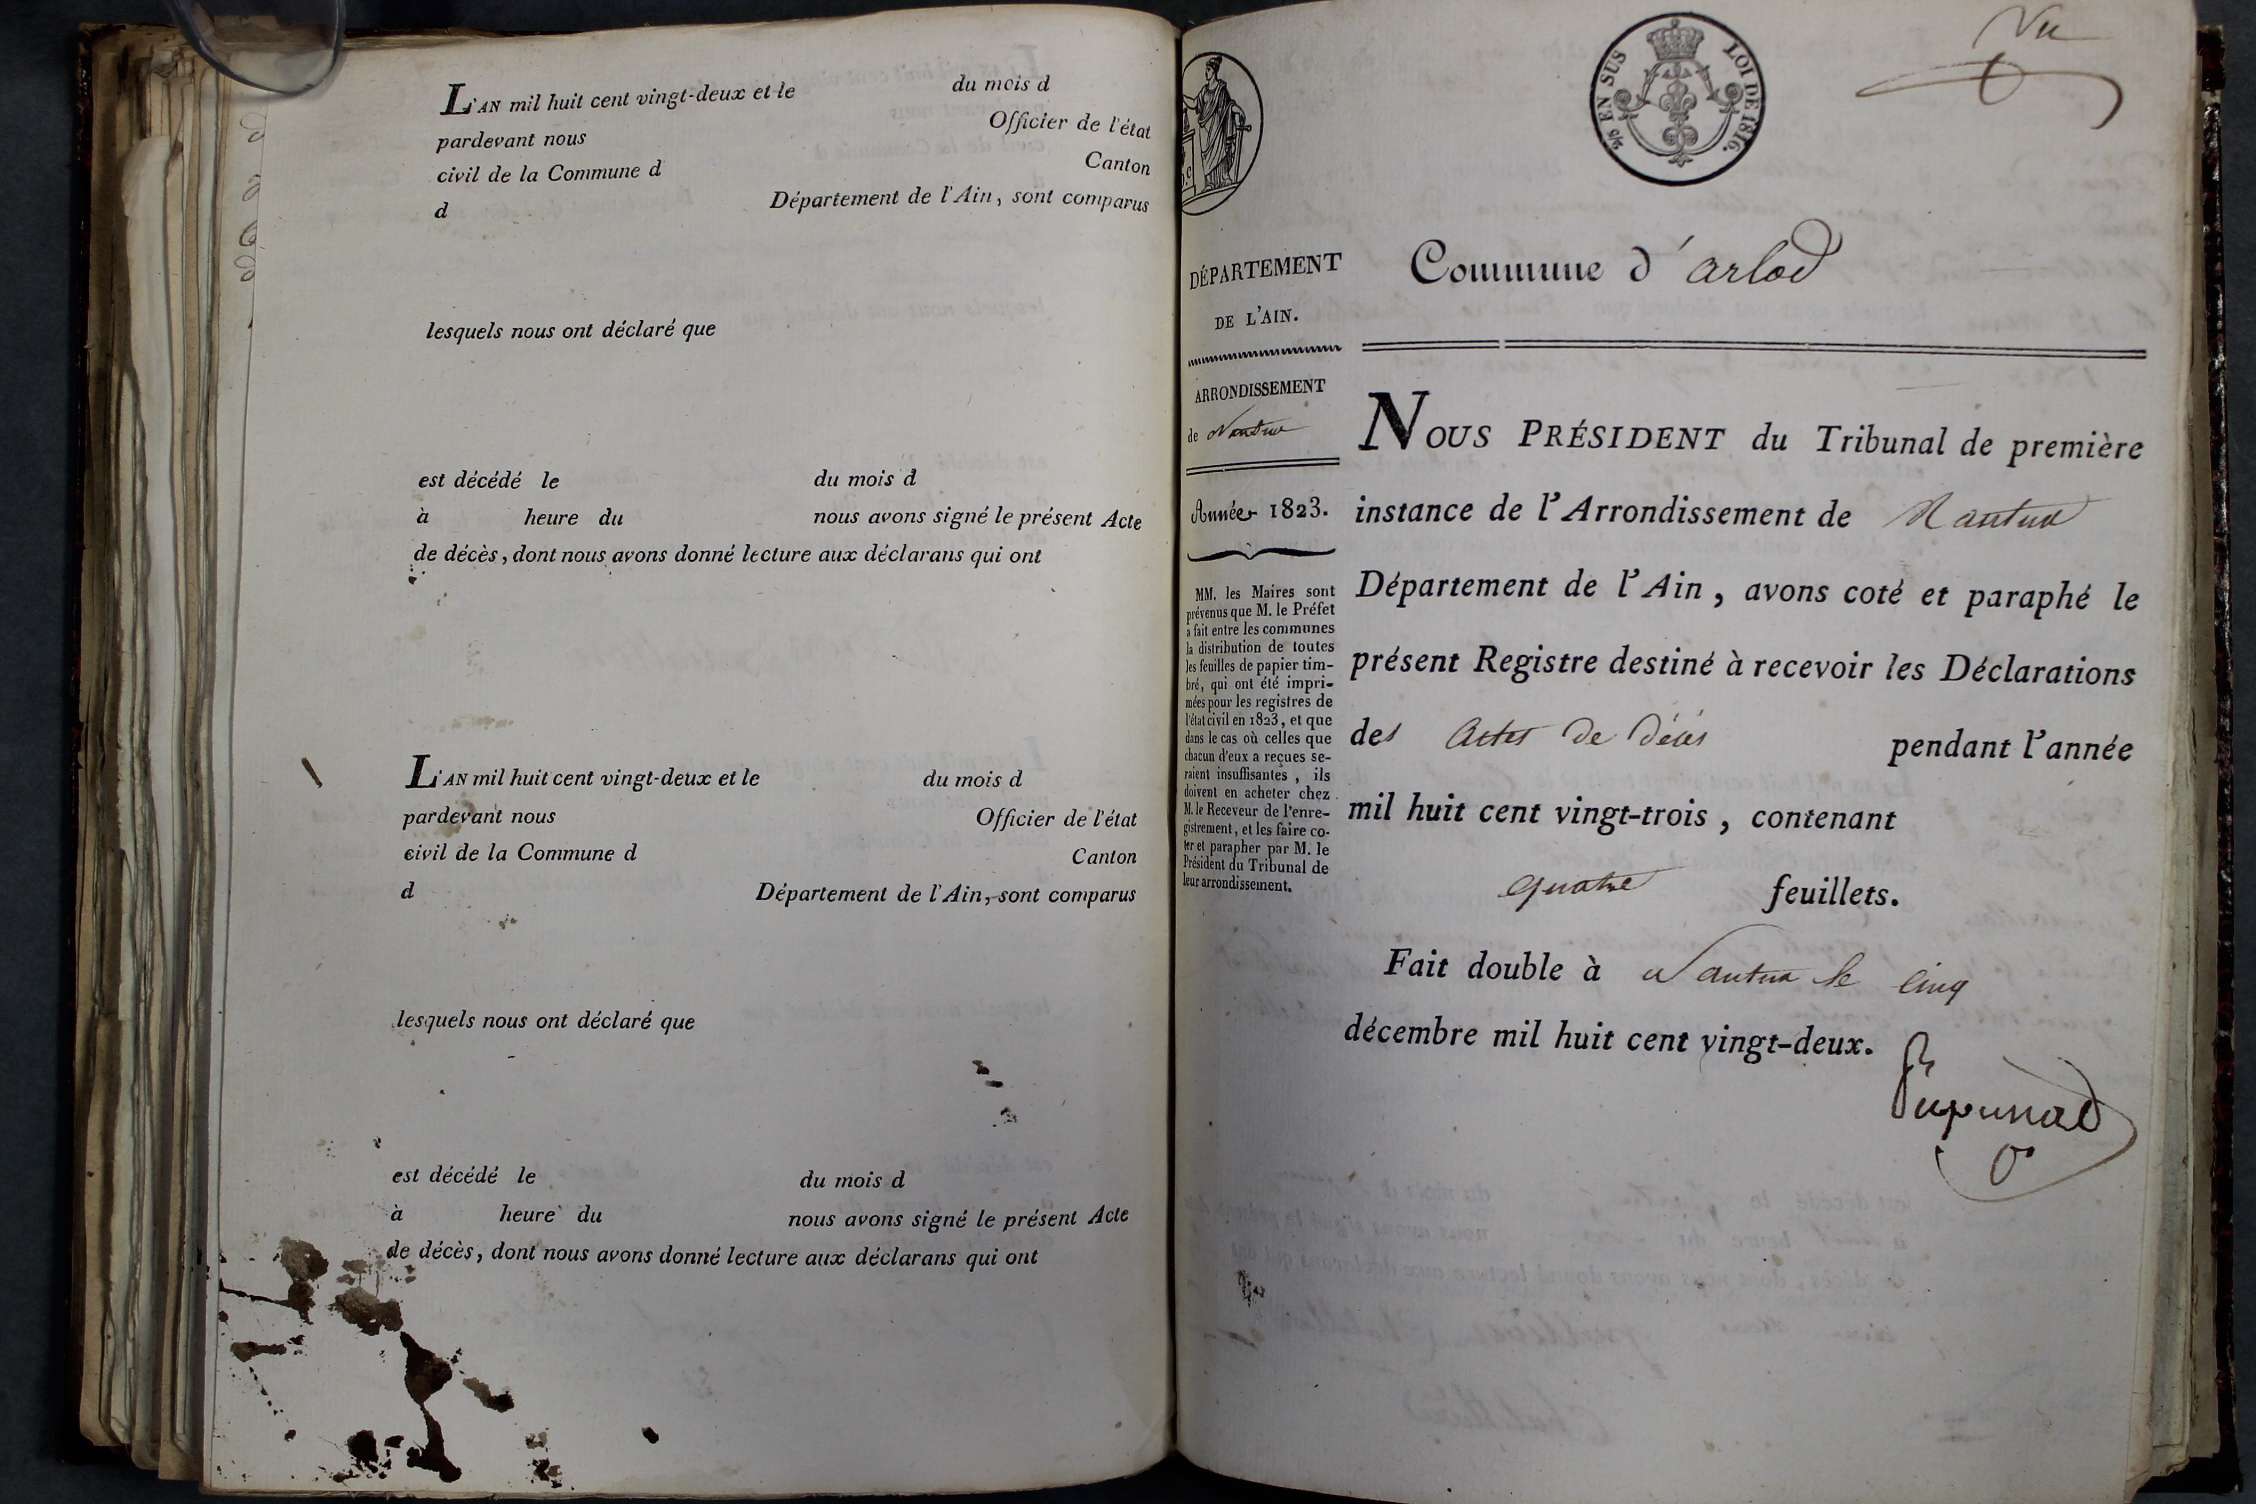 L'AN mil huit cent vingt-deux et le du mois d
pardevant nous Officier de l'état
civil de la Commune d Canton
d Département de l'Ain, sont comparus
lesquels nous ont déclaré que
est décédé le du mois d
à heure du nous avons signé le présent Acte
de décès, dont nous avons donné lecture aux déclarans qui ont
L'AN mil huit cent vingt-deux et le du mois d
pardevant nous Officier de l'état
civil de la Commune d Canton
d Département de l'Ain, sont comparus
lesquels nous ont déclaré que
est décédé le du mois d
à heure du nous avons signé le présent Acte
de décès, dont nous avons donné lecture aux déclarans qui ont
EN SUS LOI DE 1816.
Vu
DÉPARTEMENT
DE L'AIN.
ARRONDISSEMENT
de Nantua
Année 1823.
MM. les Maires sont
prévenus que M. le Préfet
a fait entre les communes
la distribution de toutes
les feuilles de papier tim-
bré, qui ont été impri-
mées pour les registres de
l'état civil en 1823, et que
dans le cas où celles que
chacun d'eux a reçues se-
raient insuffisantes, ils
doivent en acheter chez
M. le Receveur de l'enre-
gistrement, et les faire co-
ter et parapher par M. le
Président du Tribunal de
leur arrondissement.
Commune d'arlod
NOUS PRÉSIDENT du Tribunal de première
instance de l'Arrondissement de Nantua
Département de l'Ain, avons coté et paraphé le
présent Registre destiné à recevoir les Déclarations
des Actes de décès pendant l'année
mil huit cent vingt-trois, contenant
quatre feuillets.
Fait double à Nantua le cinq
décembre mil huit cent vingt-deux.